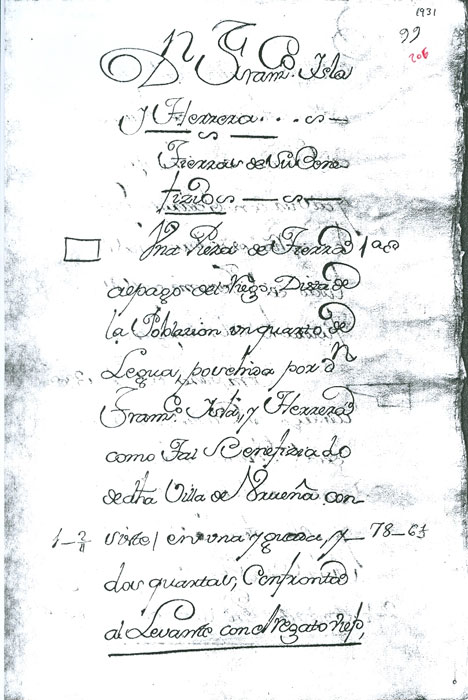 1931
99
206
D.n Fran.co Isla
Y Herrera
Tierras de Su Bene
fizio
Una Pieza de Tierra 1ª
al pago del Diza de
la Poblazion un quarto de
Legua, posehida por d.n
Fran.co Isla, y Herrera
como Tal Benefiziado
de dha Villa de con
siste en una yguada, y 78-63
dos quartas, Confronta
al Levante con el regato